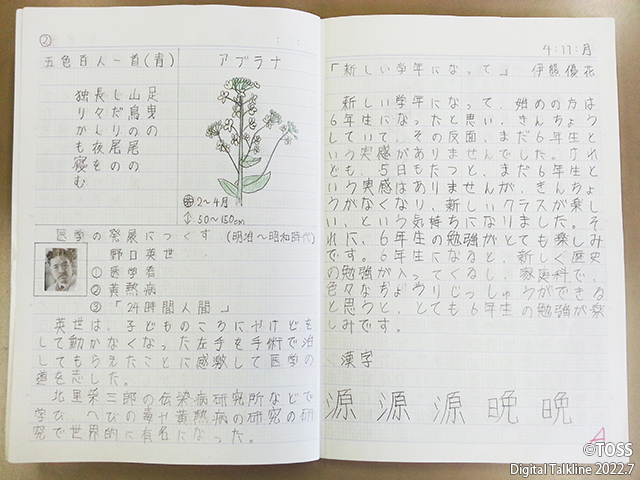 ②
五色百人一首(青)
足曳の
山鳥の尾の
しだり尾の
長々し夜を
独りかも寝む
アブラナ
2〜4月
50〜150cm
医学の発展につくす (明治〜昭和時代)
野口英世
①医学者
②黄熱病
③「24時間人間」
英世は、子どものころにやけどを
して動かなくなった左手を手術で治
してもらえたことに感激して医学の
道を志した。
北里柴三郎の伝染病研究所などで
学び、へびの毒や黄熱病の研究の研
究で世界的に有名になった。
4:17:月
「新しい学年になって」 伊熊優花
新しい学年になって、始めの方は
6年生になったと思い、きんちょう
していて、その反面、まだ6年生と
いう実感がありませんでした。けれ
ども、5日もたつと、まだ6年生と
いう実感はありませんが、きんちょ
うがなくなり、新しいクラスが楽し
い、という気持ちになりました。そ
れに、6年生の勉強がとても楽しみ
です。6年生になると、新しく歴史
の勉強が入ってくるし、家庭科で、
色々なちょうりじっしゅうができる
と思うと、とても6年生の勉強が楽
しみです。
漢字
源 源 源 晩 晩
A
©TOSS
Digital Talkline 2022.7